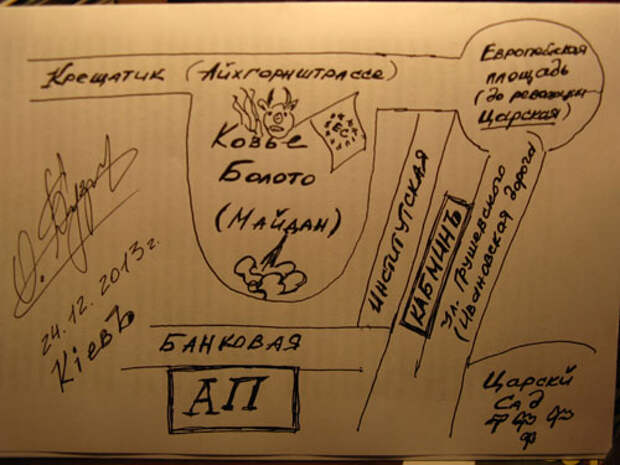 Крещатик (Айхгорнштрассе)
Европейская
площадь
(до революции
Царская)
ЕС
Козье
Болото
(Майдан)
Институтская
КАБМИНЪ
ул. Грушевского
(Ивановская дорога)
24.12.2013г.
КіевЪ
БАНКОВАЯ
АП
Царскй
Сад